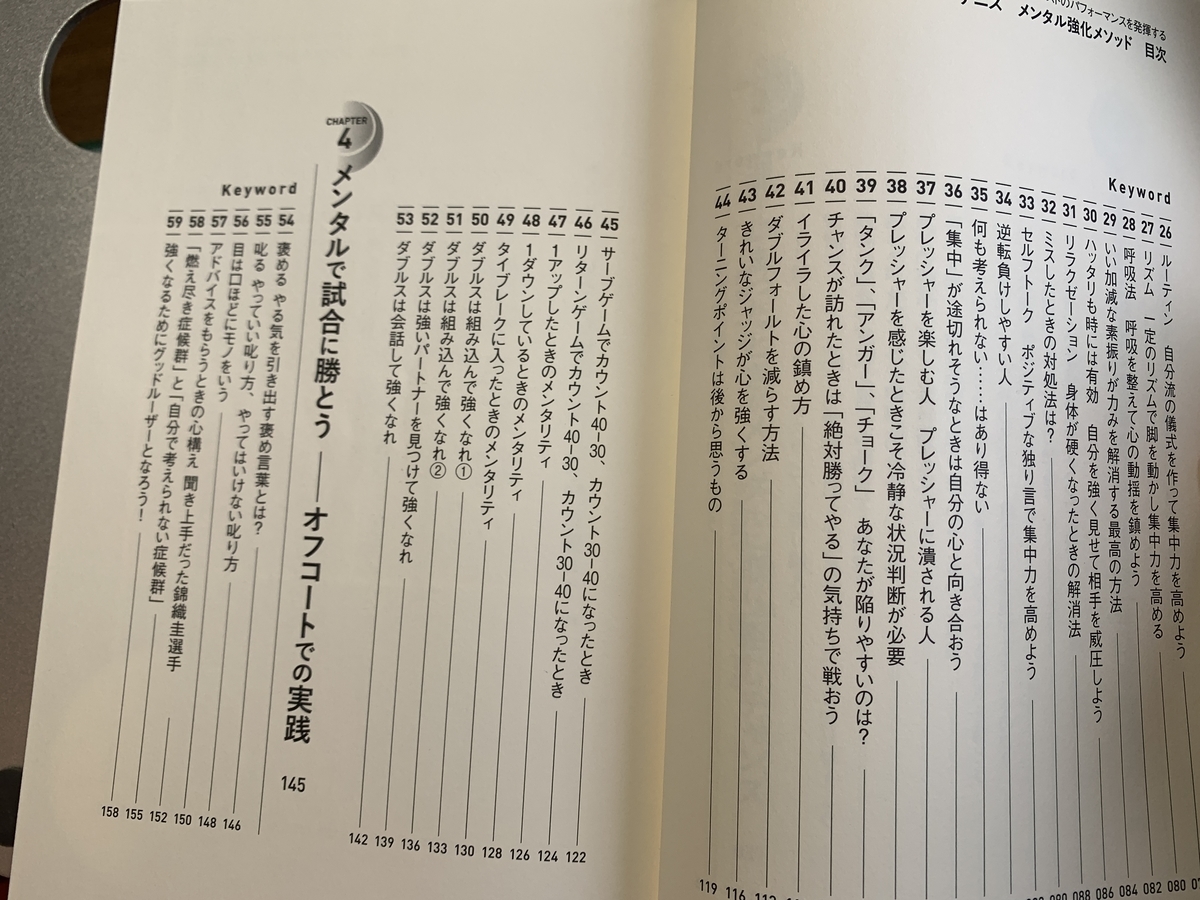 ストのパフォーマンスを発揮する
テニス　メンタル強化メソッド　目次
Keyword
26 ルーティン　自分流の儀式を作って集中力を高めよう
27 リズム　一定のリズムで脚を動かし集中力を高める 080
28 呼吸法　呼吸を整えて心の動揺を鎮めよう 082
29 いい加減な素振りが力みを解消する最高の方法 084
30 ハッタリも時には有効　自分を強く見せて相手を威圧しよう 086
31 リラクゼーション　身体が硬くなったときの解消法 088
32 ミスしたときの対処法は? 090
33 セルフトーク　ポジティブな独り言で集中力を高めよう
34 逆転負けしやすい人
35 何も考えられない……はあり得ない
36 「集中」が途切れそうなときは自分の心と向き合おう
37 プレッシャーを楽しむ人　プレッシャーに潰される人
38 プレッシャーを感じたときこそ冷静な状況判断が必要
39 「タンク」、「アンガー」、「チョーク」　あなたが陥りやすいのは?
40 チャンスが訪れたときは「絶対勝ってやる」の気持ちで戦おう
41 イライラした心の鎮め方
42 ダブルフォールトを減らす方法
43 きれいなジャッジが心を強くする 116
44 ターニングポイントは後から思うもの 119
45 サーブゲームでカウント40-30、カウント30-40になったとき 122
46 リターンゲームでカウント40-30、カウント30-40になったとき 124
47 1アップしたときのメンタリティ 126
48 1ダウンしているときのメンタリティ 128
49 タイブレークに入ったときのメンタリティ 130
50 ダブルスは組み込んで強くなれ① 133
51 ダブルスは組み込んで強くなれ② 136
52 ダブルスは強いパートナーを見つけて強くなれ 139
53 ダブルスは会話して強くなれ 142
CHAPTER
4
メンタルで試合に勝とう――オフコートでの実践 145
Keyword
54 褒める やる気を引き出す褒め言葉とは? 146
55 叱る やっていい叱り方、やってはいけない叱り方 148
56 目は口ほどにモノをいう 150
57 アドバイスをもらうときの心構え 聞き上手だった錦織圭選手 152
58 「燃え尽き症候群」と「自分で考えられない症候群」 155
59 強くなるためにグッドルーザーとなろう! 158